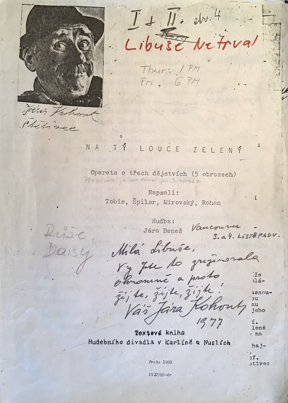 I + II. obr. 4
Libuše Netrval
Thur. 1 PM
Fri. 6 PM
Jiří Kohout
NA TÉ LOUCE ZELENÝ
Opereta o třech dějstvích (5 obrazech)
Napsali:
Tobis, Špilar, Mírovský, Rohan
Hudba:
Jára Beneš
Vancouver
3. a 4. LISTOPADU.
Růže
Daisy
Milá Libuše,
Vy jste to
ohromně a proto
žijte, žijte, žijte!
Váš Jára Kohout
1977
Textová kniha
Hudebního divadla v Karlíně a Nuslích
Praha